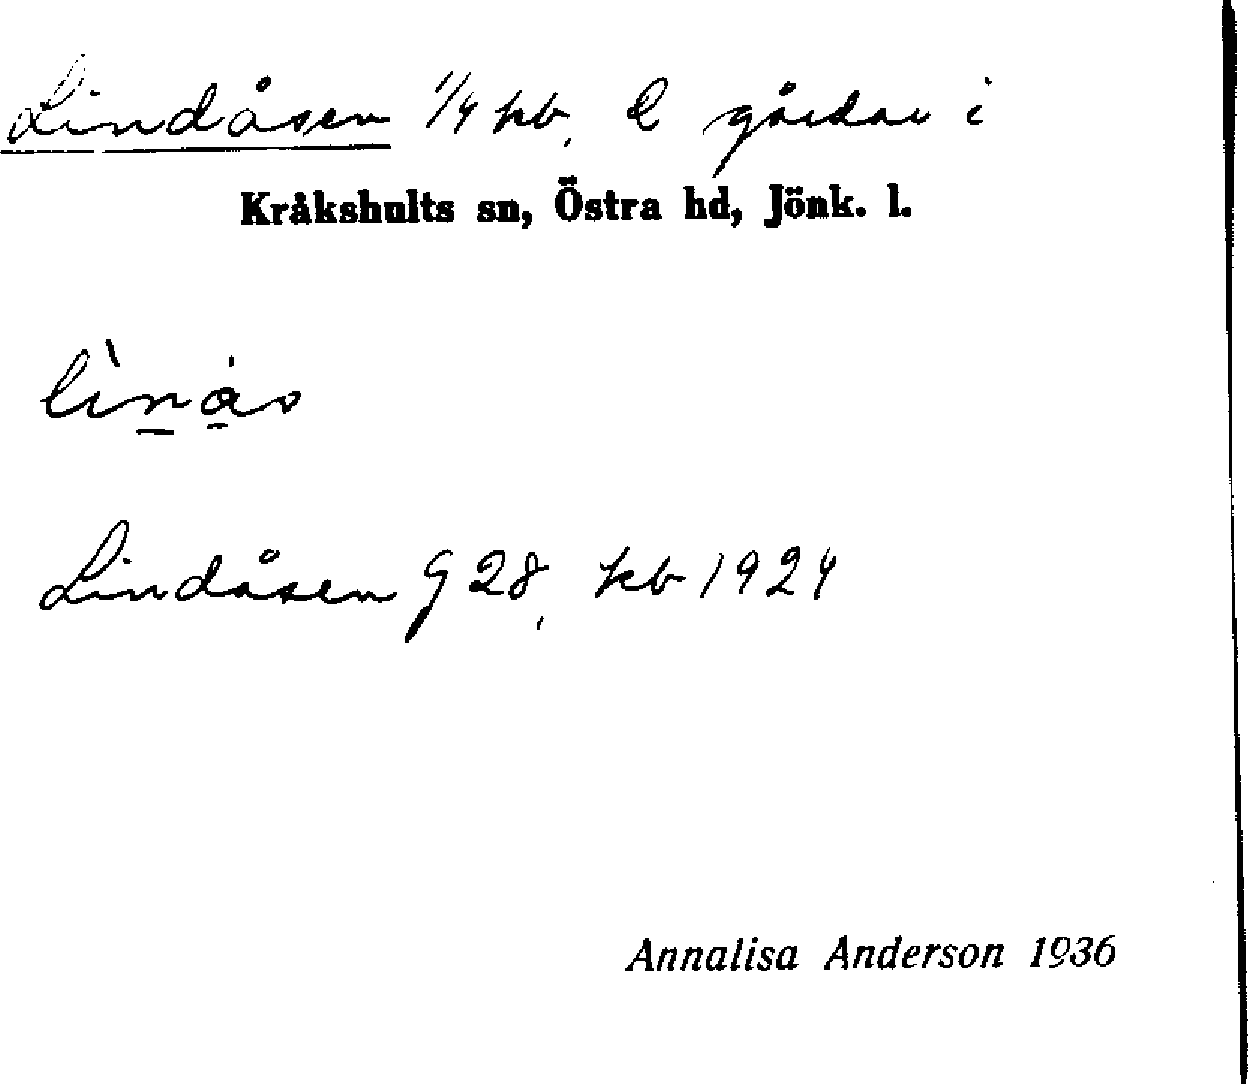 Lindåsen 1/4 kb, 2 gårdar i
Kråkshults sn, Östra hd, Jönk. l.
Lindåsen G 28, kb 1924
Annalisa Anderson 1936